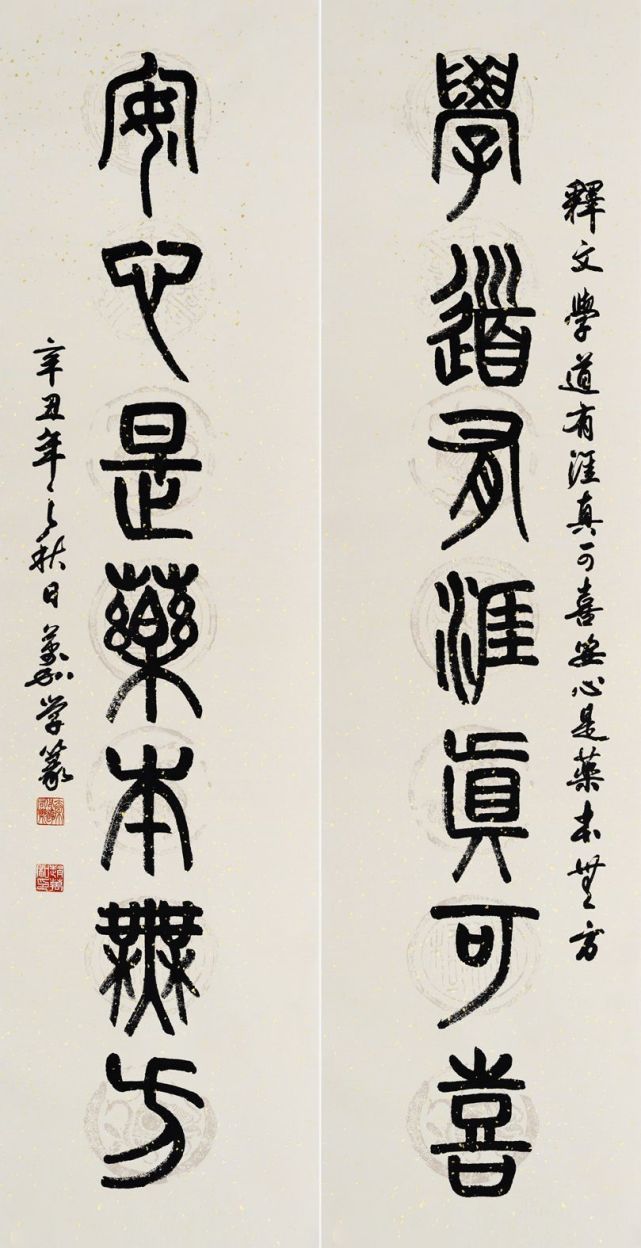 釋文學道有涯真可喜安心是藥本無方
學道有涯眞可喜
安心是藥本無方
辛丑年之秋日學篆